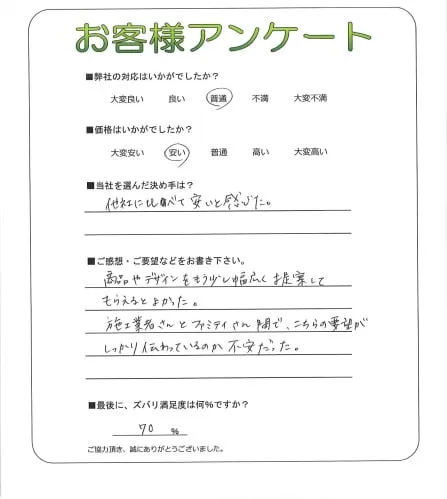 お客様アンケート
■弊社の対応はいかがでしたか？
大変良い 良い 普通 不満 大変不満
■価格はいかがでしたか？
大変安い 安い 普通 高い 大変高い
■当社を選んだ決め手は？
他社に比べて安いと感じた。
■ご感想・ご要望などをお書き下さい。
商品やデザインをもう少し幅広くお提案して
もらえるとよかった。
施工業者さんとファミティさん間で、こちらの要望が
しっかり伝わっているのか不安だった。
■最後に、ズバリ満足度は何%ですか？
70 %
ご協力頂き、誠にありがとうございました。